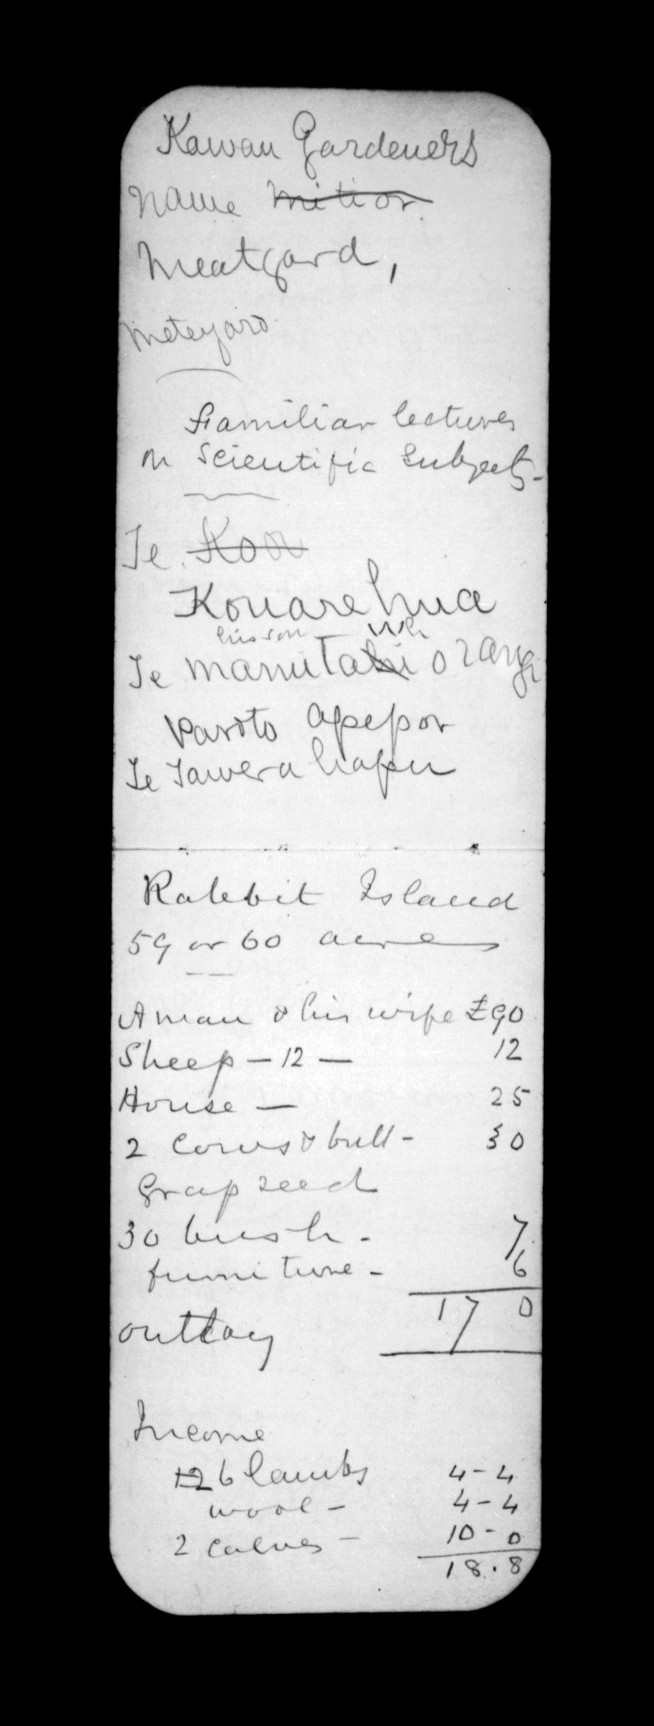 Kawau Gardeners
Name mitior
Meatgard,
Meteyard
Familiar lectures
on Scientific Subjects-
Te Koa
Kouarehua
his son
Te manutahi o rangi
Paroto apepor
Te Tawera hapu
Rabbit Island
59 or 60 acres
A man & his wife £90
Sheep - 12 - 12
House - 25
2 Cows & bull - 30
Grap seed
30 bush - 7
furniture - 6
outlay 170
Income
12 6 lambs 4-4
wool - 4-4
2 calves - 10-0
18.8